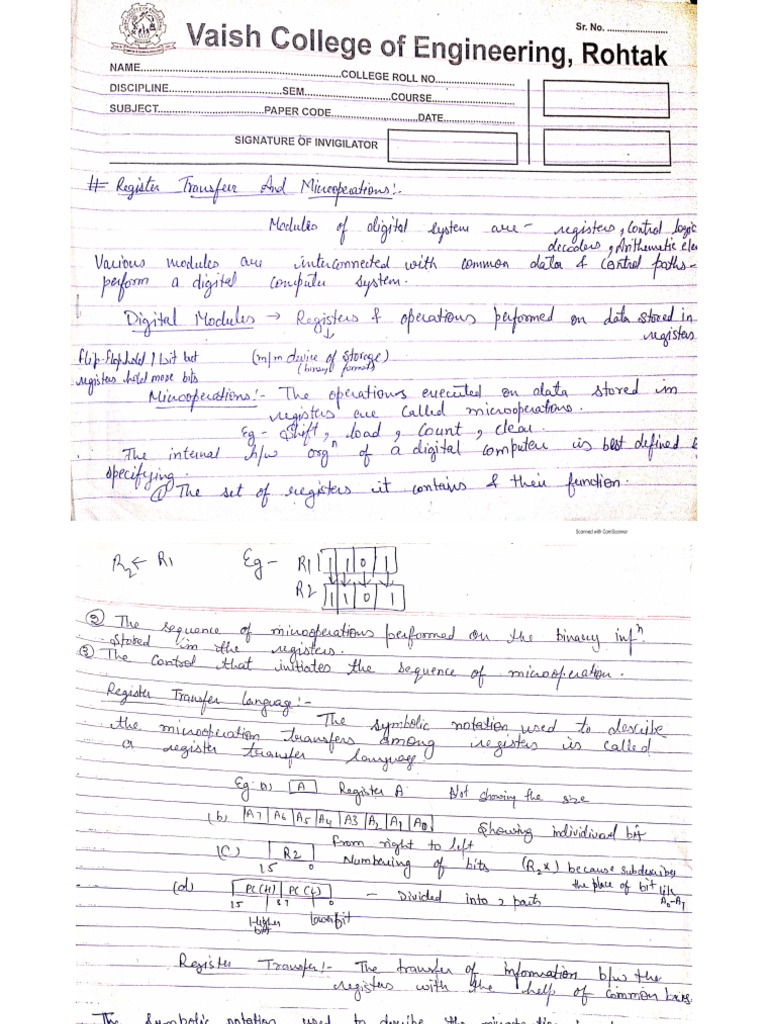 Sr. No. ......................
Vaish College of Engineering, Rohtak
NAME..........................................................COLLEGE ROLL NO...........................
DISCIPLINE.................................SEM...........................COURSE...........................
SUBJECT...............................PAPER CODE...........................DATE........................
SIGNATURE OF INVIGILATOR
# Register Transfer And Microoperations:-
Modules of digital system are - registers, Control logic
decoders, Arithematic ele
Various modules are interconnected with common data & control paths-
perform a digital computer system.
Digital Modules → Registers & operations performed on data stored in
registers
flip-flop hold 1 bit but (m/m device of storage)
registers hold more bits (binary format)
Microoperations:- The operations executed on data stored in
registers are called microoperations.
Eg- Shift, load, Count, clear.
The internal h/w orgn of a digital computer is best defined
specifying.
① The set of registers it contains & their function.
Scanned with CamScanner
R2 ← R1 Eg - R1 1 1 0 1
R2 1 1 0 1
② The sequence of microoperations performed on the binary infn
stored in the registers.
③ The control that initiates the sequence of microoperation.
Register Transfer language:-
The symbolic notation used to describe
the microoperation transfers among registers is called
a register transfer language
Eg a) A Register A Not showing the size
(b) A7 A6 A5 A4 A3 A2 A1 A0 Showing individual bit
from right to left
(c) R2 Numbering of bits (R2 x) because subscribes
15 0 the place of bit like
(d) PC(H) PC(L) - Divided into 2 parts A0-A7
15 8 7 0
Higher bit lower bit
Register Transfer:- The transfer of information b/w the
registers with the help of common bus.
The symbolic notation used to describe the